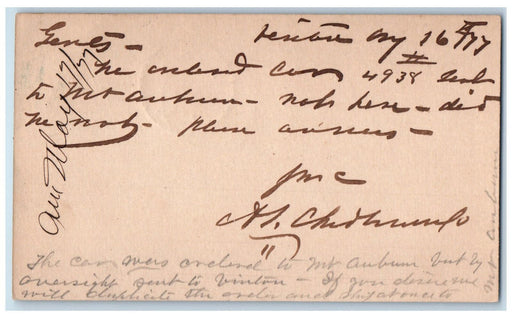 Gents - Vinton May 16th 77
We ordered car 4938 sent
to Mt Auburn - not here - did
we not - please answer -
Yours
A S. Chadbourne
Ans May 17/77
The car was ordered to Mt Auburn but by
oversight sent to Vinton - If you desire we
will duplicate the order and ship at once to
Mt Auburn